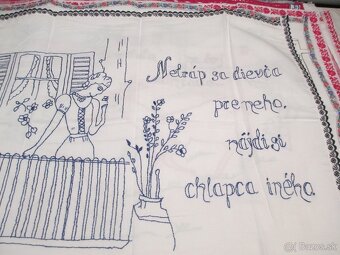 Netráp sa dievča
pre neho,
nájdi si
chlapca iného
Bazos.sk